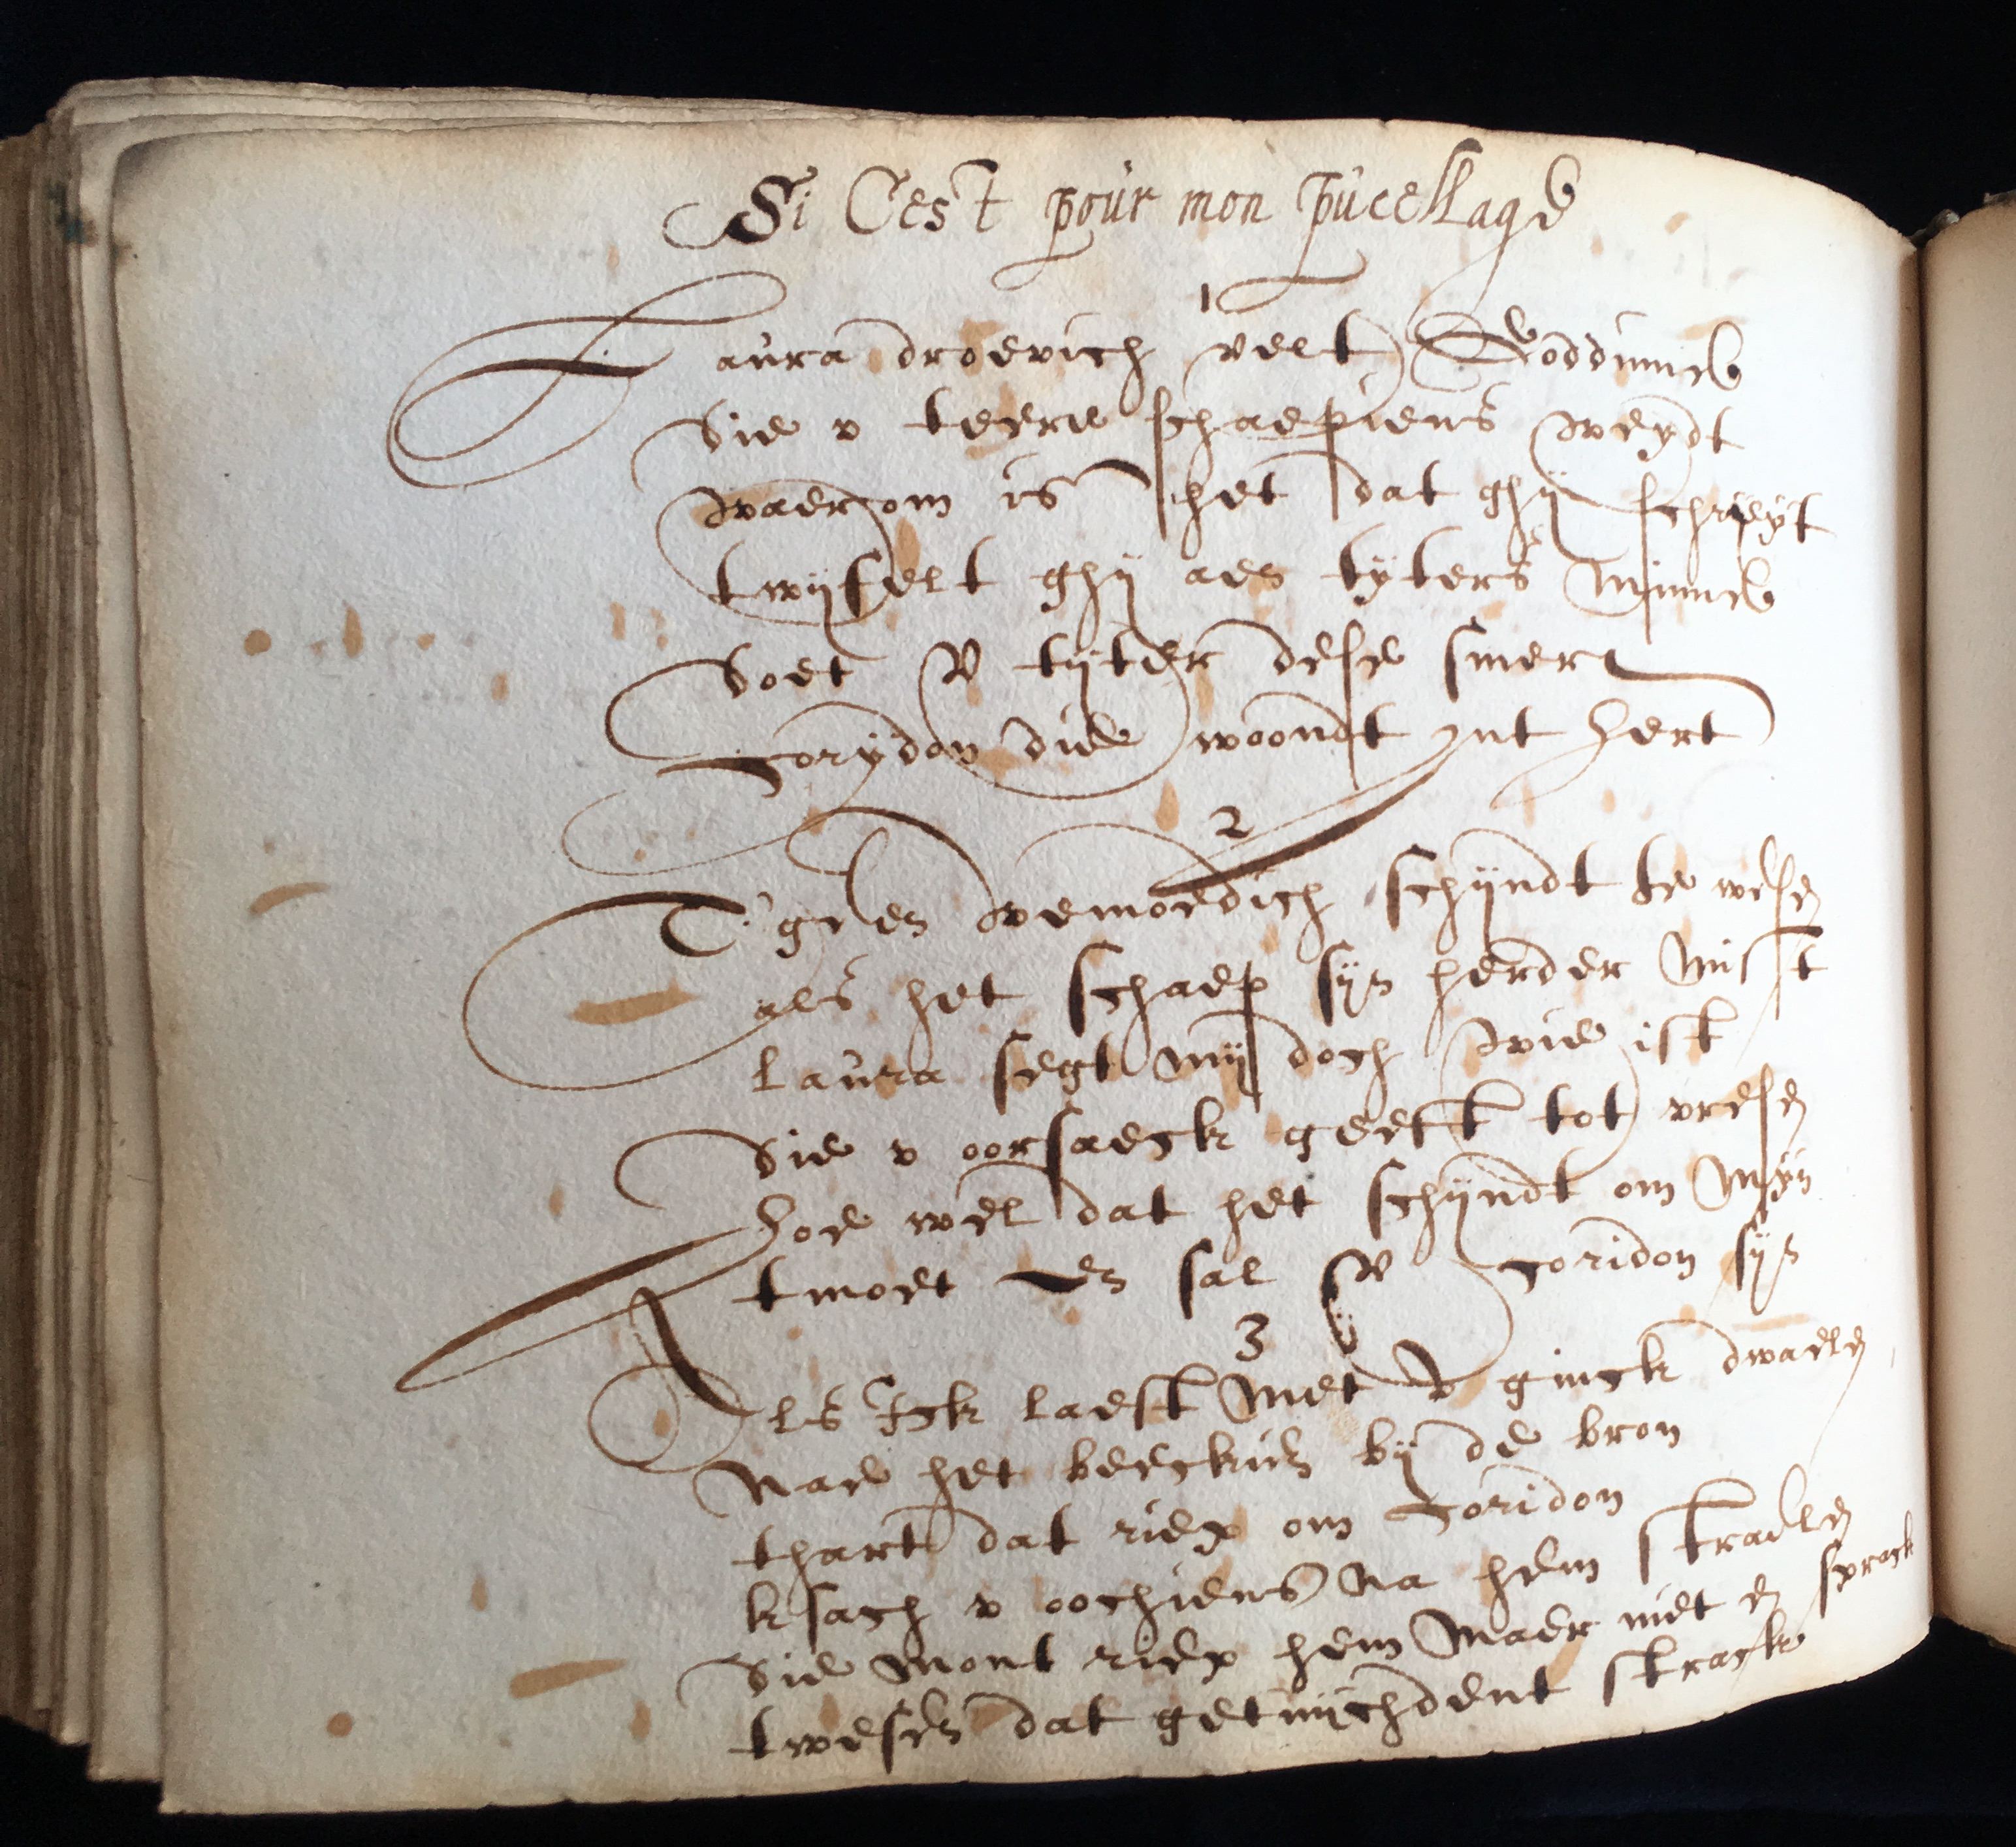 Si C'est pour mon pucellage
1
Laura droevich velt Goddinne
Die v teere schaepiens weydt
waerom is het dat ghy schreyt
twyfelt ghy aen tyters minne
Doet V tyter dese smert
Corydon die woondt int hert
2
T'geen vemoedich schyndt te wesen
als het schaep syn herder mist
laura segt my doch wie ist
Die v oorsaeck geeft tot vresen
hoe wel dat het schyndt om myn
tmoet en sal om coridon syn
3
Als Ick laest met V ginck dwaelen
Nae het beeckien by de bron
thart dat riep om Coridon
k sach v oochiens na hem straelen
Die mont riep hem maer niet en sprack
twesen dat getuychdent strack